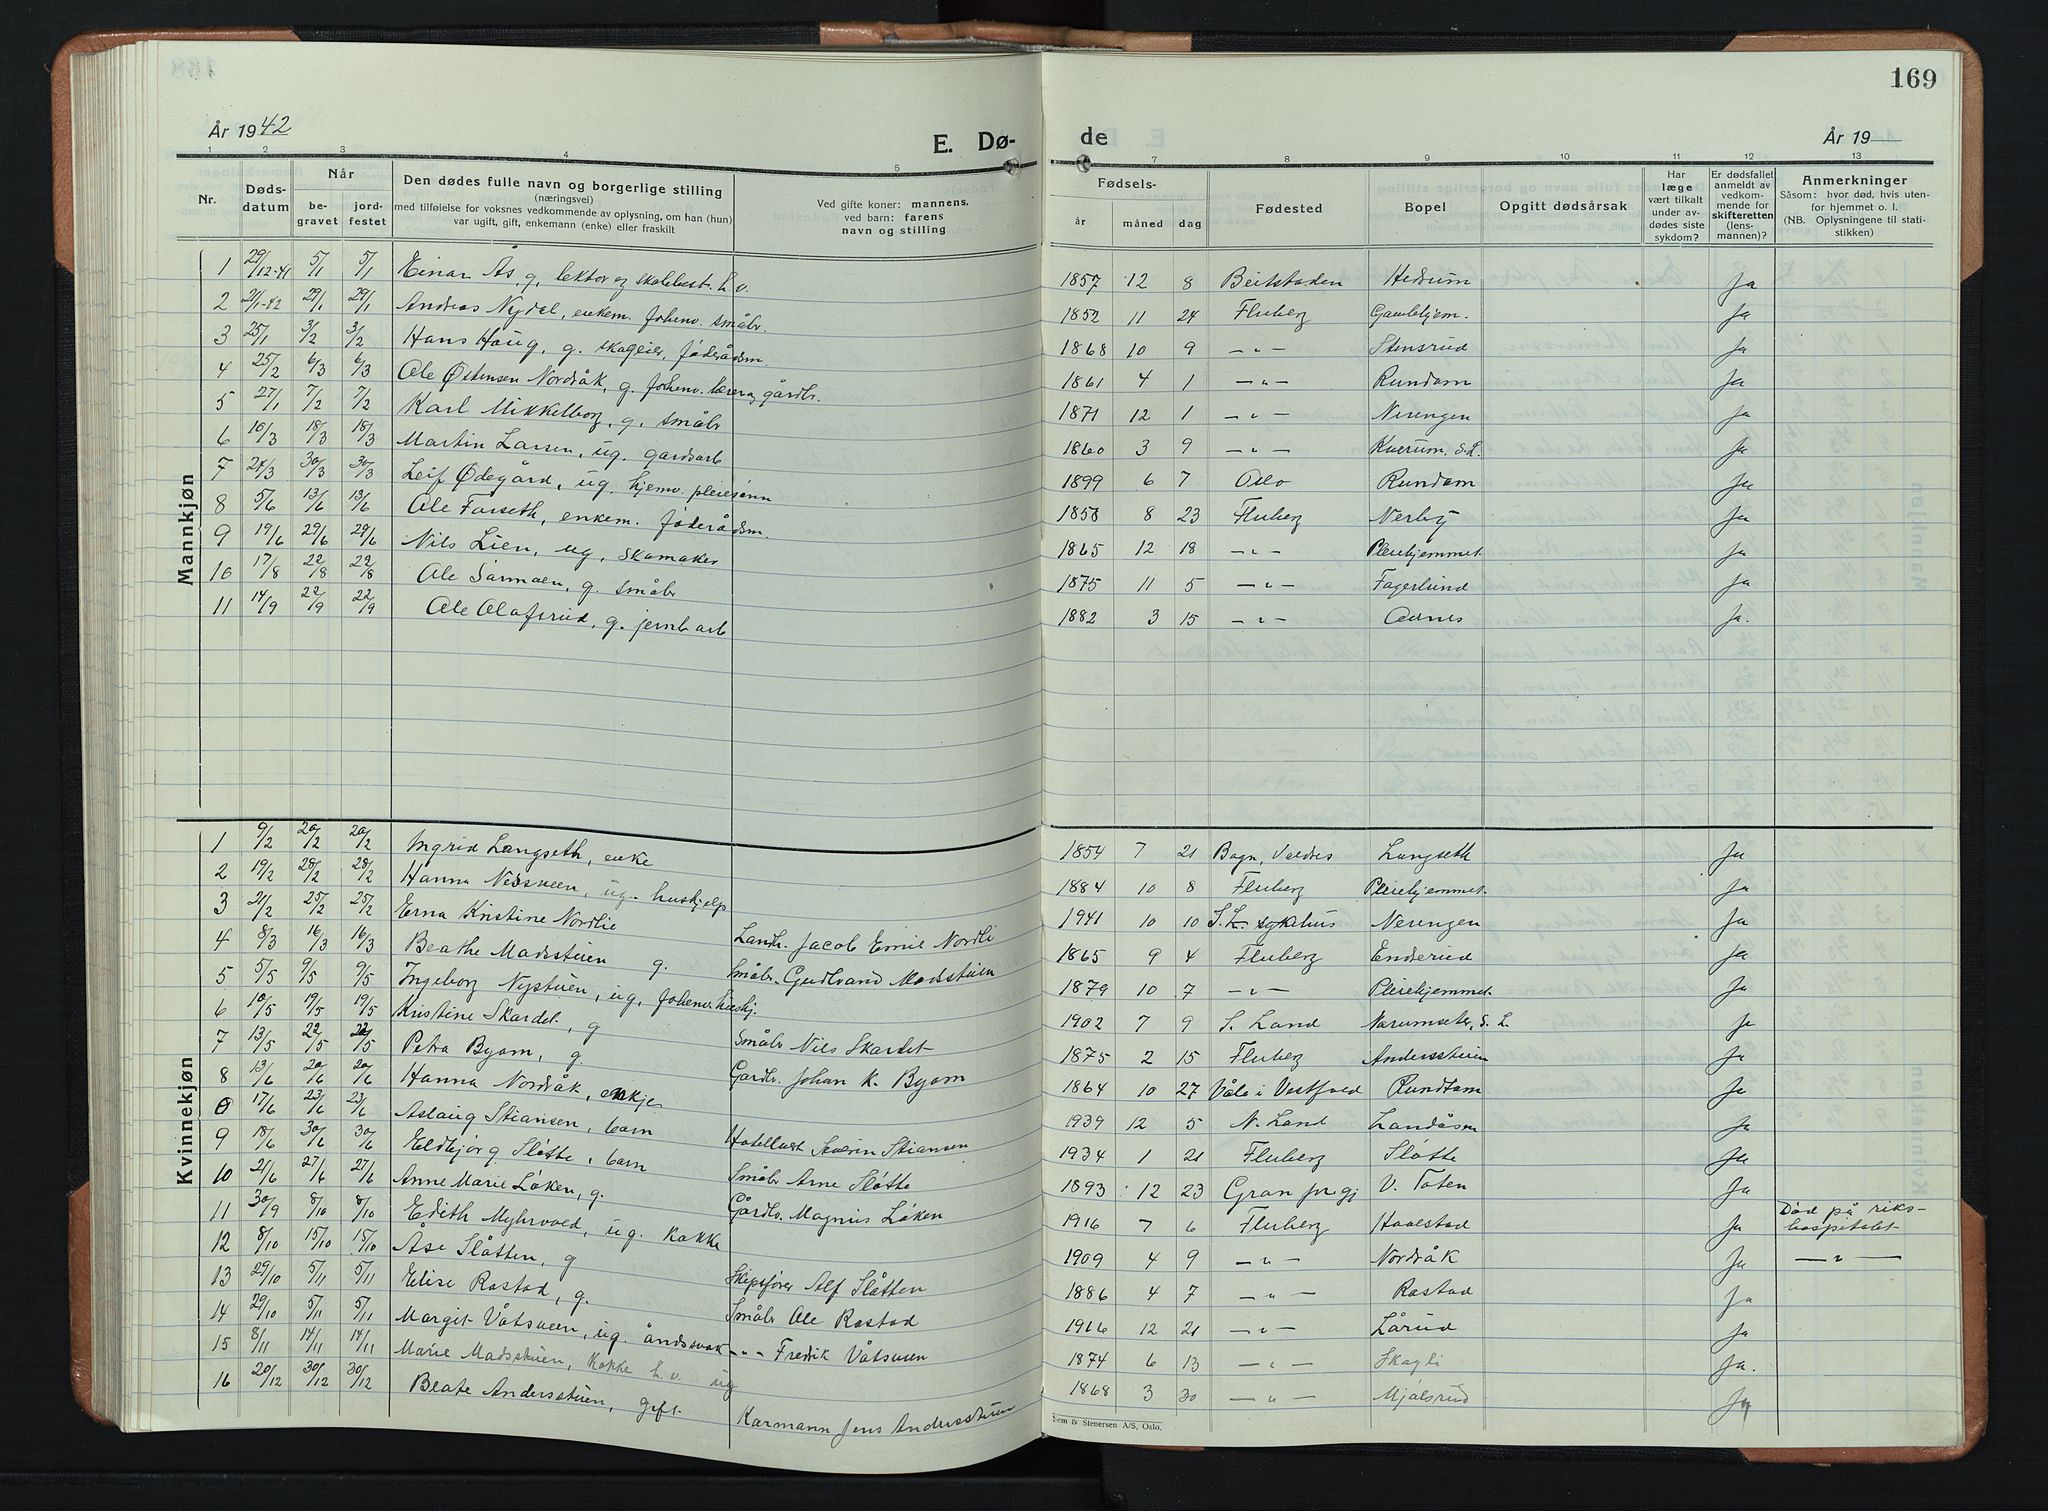 169
År 1942
E. Dø-
de
År 19
1 2 3 4 5
7 8 9 10 11 12 13
Nr. Døds-datum Når be-gravet jord-festet Den dødes fulle navn og borgerlige stilling (næringsvei) med tilføielse for voksnes vedkommende av oplysning, om han (hun) var ugift, gift, enkemann (enke) eller fraskilt Ved gifte koner: mannens, ved barn: farens navn og stilling
Fødsels- år måned dag Fødested Bopel Opgitt dødsårsak Har læge vært tilkalt under av-dødes siste sykdom? Er dødsfallet anmeldt av vedkom-mende for skifteretten (lens-mannen)? Anmerkninger Såsom: hvor død, hvis uten-for hjemmet o. l. (NB. Oplysningene til stati-stikken)
Mannkjøn
1 29/12-41 5/1 5/1 Einar Ås, g, lektor og skolebestr. h.v. 1857 12 8 Beitstaden Ja
2 21/1-42 29/1 29/1 Andreas Nydal, enkem. forhenv. småbr. 1852 11 24 Fluberg Gamlehjem. Ja
3 25/1 3/2 3/2 Hans Haug, g. skogeier, føderådsm. 1868 10 9 —"— Stensrud Ja
4 25/2 6/3 6/3 Ole Østensen Nordråk, g. forhenv. lærer og gårdbr. 1861 4 1 —"— Rundom Ja
5 27/1 7/2 7/2 Karl Mikkelborg, g, småbr 1871 12 1 —"— Nerengen Ja
6 10/3 18/3 18/3 Martin Larsen, ug. gardsarb 1860 3 9 —"— Kverum, S.L. Ja
7 24/3 30/3 30/3 Leif Ødegård, ug, hjemv. pleiesønn 1899 6 7 Oslo Rundom Ja
8 5/6 13/6 13/6 Ole Forseth, enkem. føderådsm. 1858 8 23 Fluberg Nerby Ja
9 19/6 29/6 29/6 Nils Lien, ug, skomaker 1865 12 18 —"— Pleiehjemmet Ja
10 17/8 22/8 22/8 Ole Sørmoen, g. småbr 1875 11 5 —"— Fagerlund Ja
11 14/9 22/9 22/9 Ole Olafsrud, g. jernb arb 1882 3 15 —"— Odnes Ja.
Kvinnekjøn
1 9/2 20/2 20/2 Ingrid Langseth, enke 1854 7 21 Bagn, Valdres Langseth Ja
2 19/2 28/2 28/2 Hanna Nessveen, ug. hushjelp 1884 10 8 Fluberg Pleiehjemmet. Ja
3 21/2 25/2 25/2 Erna Kristine Nordlie Landbr. Jacob Emil Nordli 1941 10 10 S.L. sykehus Nerengen Ja
4 8/3 16/3 16/3 Beathe Madsstuen g. Småbr. Gudbrand Madstuen 1865 9 4 Fluberg Enderud Ja
5 5/5 9/5 9/5 Ingeborg Nystuen, ug, forhenv. hushj. 1879 10 7 —"— Pleiehjemmet. Ja
6 10/5 19/5 19/5 Kristine Skardet, g Småbr Nils Skardet 1902 7 9 S. Land Narumseter, S. L. Ja
7 13/5 22/5 22/5 Petra Byom, g. Gårdbr. Johan K. Byom 1875 2 15 Fluberg Andersstuen Ja
8 13/6 20/6 20/6 Hanna Nordråk, enkje 1864 10 27 Våle i Vestfold Rundtom Ja
0 17/6 23/6 23/6 Aslaug Stiansen, barn Hotellvert Severin Stiansen 1939 12 5 N. Land Landåsen Ja
9 18/6 30/6 30/6 Eldbjørg Sløtte, barn Småbr Arne Sløtte 1934 1 21 Fluberg Sløtte Ja
10 21/6 27/6 27/6 Anne Marie Løken, g. Gårdbr. Magnus Løken 1893 12 23 Gran pr.gj V. Toten Ja
11 30/9 8/10 8/10 Edith Myhrvold, ug. Kokke 1916 7 6 Fluberg Ja Død på riks-hospitalet
12 8/10 15/10 15/10 Åse Slåtten, g Skipsfører Alf Slåtten 1909 4 9 —"— Nordråk Ja —"—
13 29/10 5/11 5/11 Elise Rostad, g. Småbr Ole Rostad 1886 4 7 —"— Rostad Ja
14 29/10 5/11 5/11 Margit Våtsveen, ug. åndssvak —"— Fredrik Våtsveen 1916 12 21 —"— Lårud Ja
15 8/11 14/11 14/11 Marie Madsstuen, Kokke h.v. ug 1874 6 13 —"— Skagli Ja.
16 20/12 30/12 30/12 Beate Andersstuen, gift Kormann Jens Andersstuen 1868 3 30 —"— Mjølsrud Ja
Sem & Stenersen A/S, Oslo.